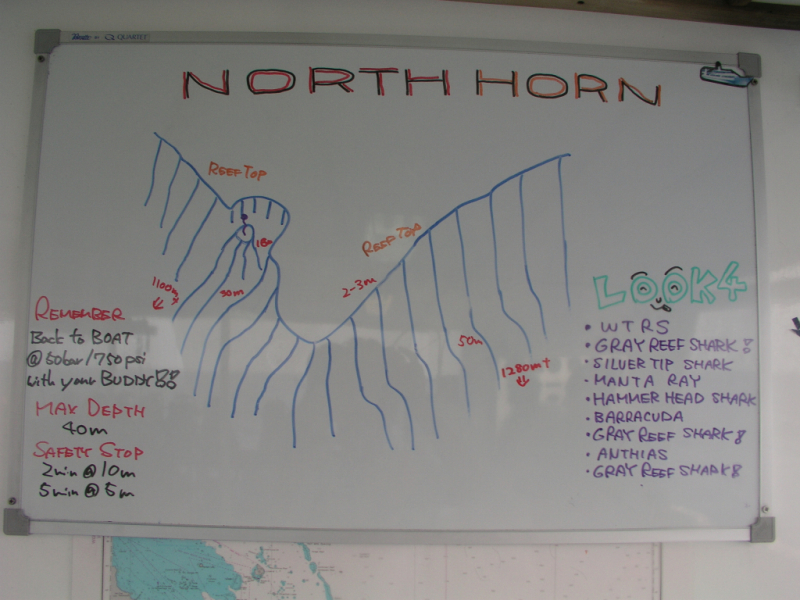 NORTH HORN
REEF TOP
REEF TOP
1100m
30m
2-3m
50m
1280m+
REMEMBER
BACK to BOAT
@ 50bar/750psi
with your BUDDY!!
MAX DEPTH
40m
SAFETY STOP
2min @ 10m
5min @ 5m
LOOK 4
• WTRS
• GRAY REEF SHARK!
• SILVER TIP SHARK
• MANTA RAY
• HAMMER HEAD SHARK
• BARRACUDA
• GRAY REEF SHARK!
• ANTHIAS
• GRAY REEF SHARK!